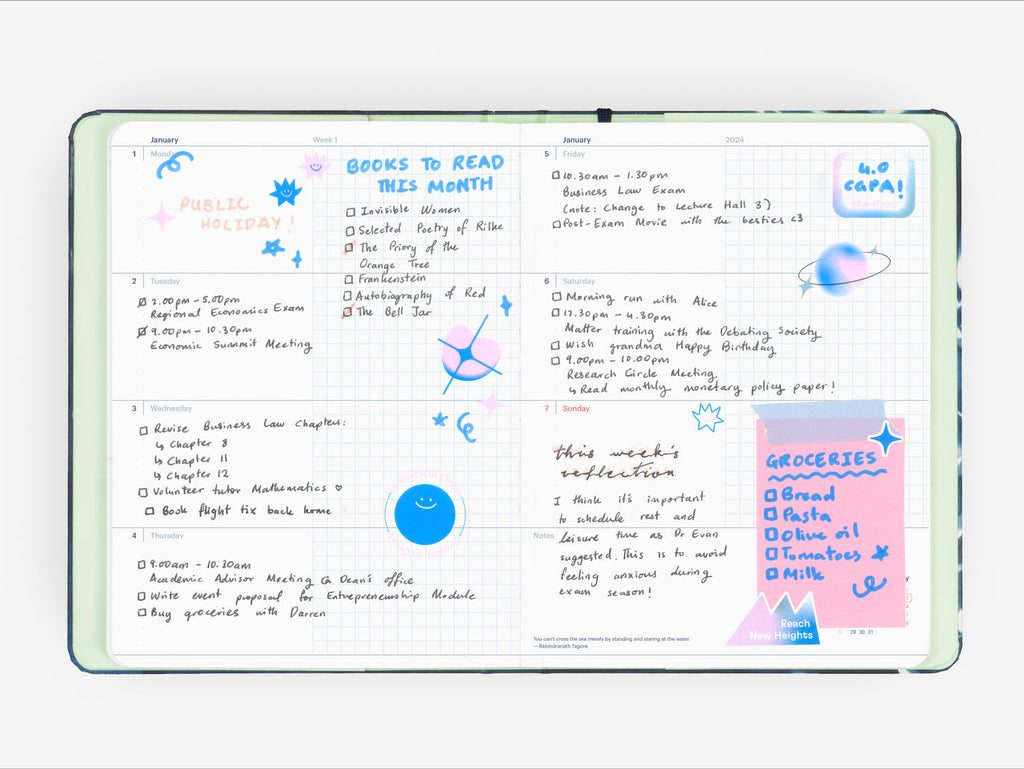 January
Week 1
1 Monday
PUBLIC
HOLIDAY!
BOOKS TO READ
THIS MONTH
Invisible Women
Selected Poetry of Rilke
The Priory of the
Orange Tree
Frankenstein
Autobiography of Red
The Bell Jar
2 Tuesday
2.00pm - 5.00pm
Regional Economics Exam
9.00pm - 10.30pm
Economic Summit Meeting
3 Wednesday
Revise Business Law Chapters:
↳ Chapter 8
↳ Chapter 11
↳ Chapter 12
Volunteer tutor Mathematics ♡
Book flight tix back home
4 Thursday
9.00am - 10.30am
Academic Advisor Meeting @ Dean's office
Write event proposal for Entrepreneurship Module
Buy groceries with Darren
January
2024
5 Friday
10.30am - 1.30pm
Business Law Exam
(note: Change to Lecture Hall 3)
Post-Exam Movie with the besties <3
4.0
CGPA!
Manifest
6 Saturday
Morning run with Alice
12.30pm - 4.30pm
Matter training with the Debating Society
Wish grandma Happy Birthday
9.00pm - 10.00pm
Research Circle Meeting
↳ Read monthly monetary policy paper!
7 Sunday
this week's
reflection
I think it's important
to schedule rest and
Notes
leisure time as Dr Evan
suggested. This is to avoid
feeling anxious during
exam season!
GROCERIES
Bread
Pasta
Olive oil
Tomatoes
Milk
Reach
New Heights
29 30 31
You can't cross the sea merely by standing and staring at the water.
— Rabindranath Tagore